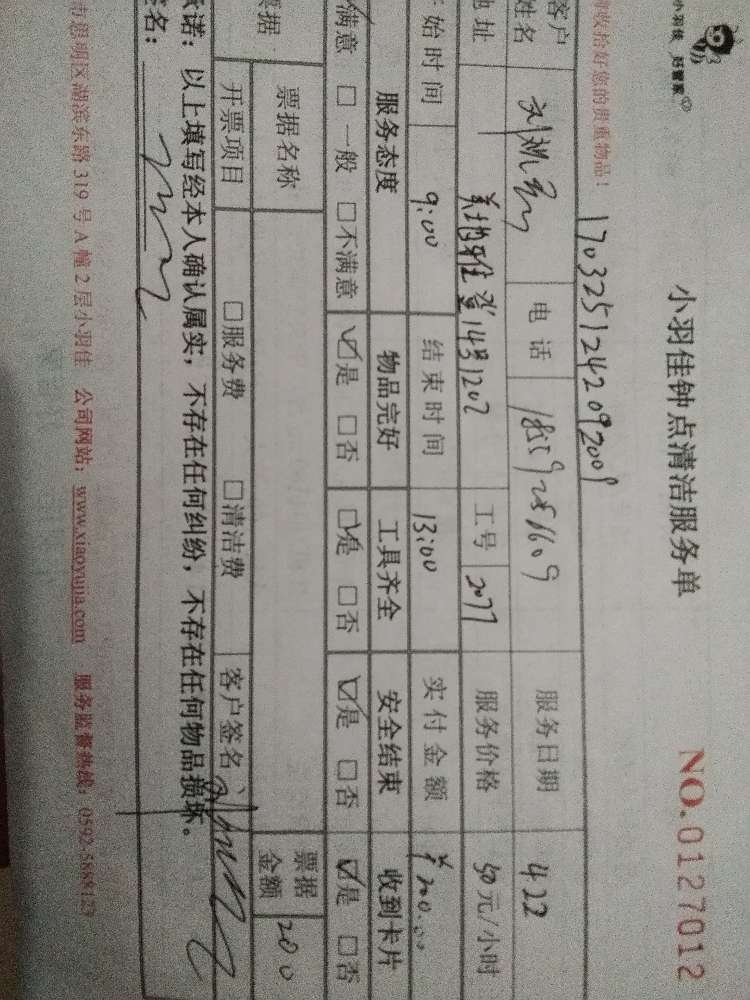 小羽佳 好管家
小羽佳钟点清洁服务单
NO.0127012
收拾好您的贵重物品！
1703251242092009
客户姓名 电话 服务日期 4.22
地址 美地雅登14号1202 工号 2077 服务价格 50元/小时
始时间 9:00 结束时间 13:00 实付金额 ¥200.00
服务态度 物品完好 工具齐全 安全结束 收到卡片
满意 □一般 □不满意 ☑是 □否 ☑是 □否 ☑是 □否 ☑是 □否
票据 票据名称 票据金额 200
开票项目 □服务费 □清洁费 客户签名
诺：以上填写经本人确认属实，不存在任何纠纷，不存在任何物品损坏。
签名：
市思明区湖滨东路319号A幢2层小羽佳 公司网站：www.xiaoyujia.com 服务监督热线：0592-5888123